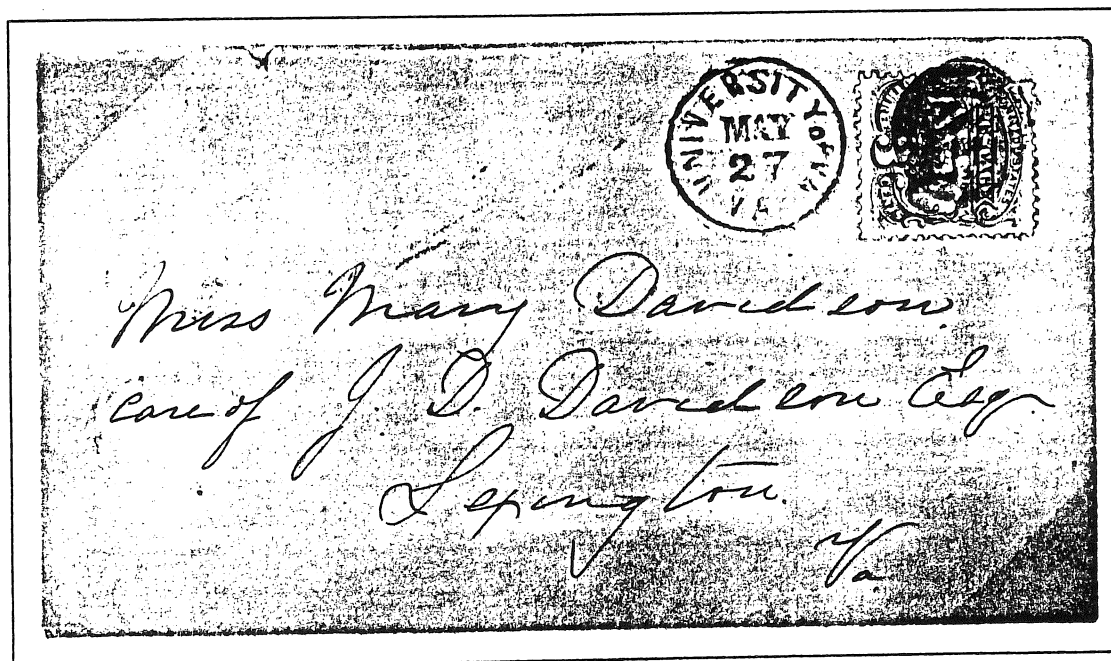 UNIVERSITY OF VA
MAY
27
VA
Miss Mary Davidson
care of J. D. Davidson Esqr
Lexington
Va